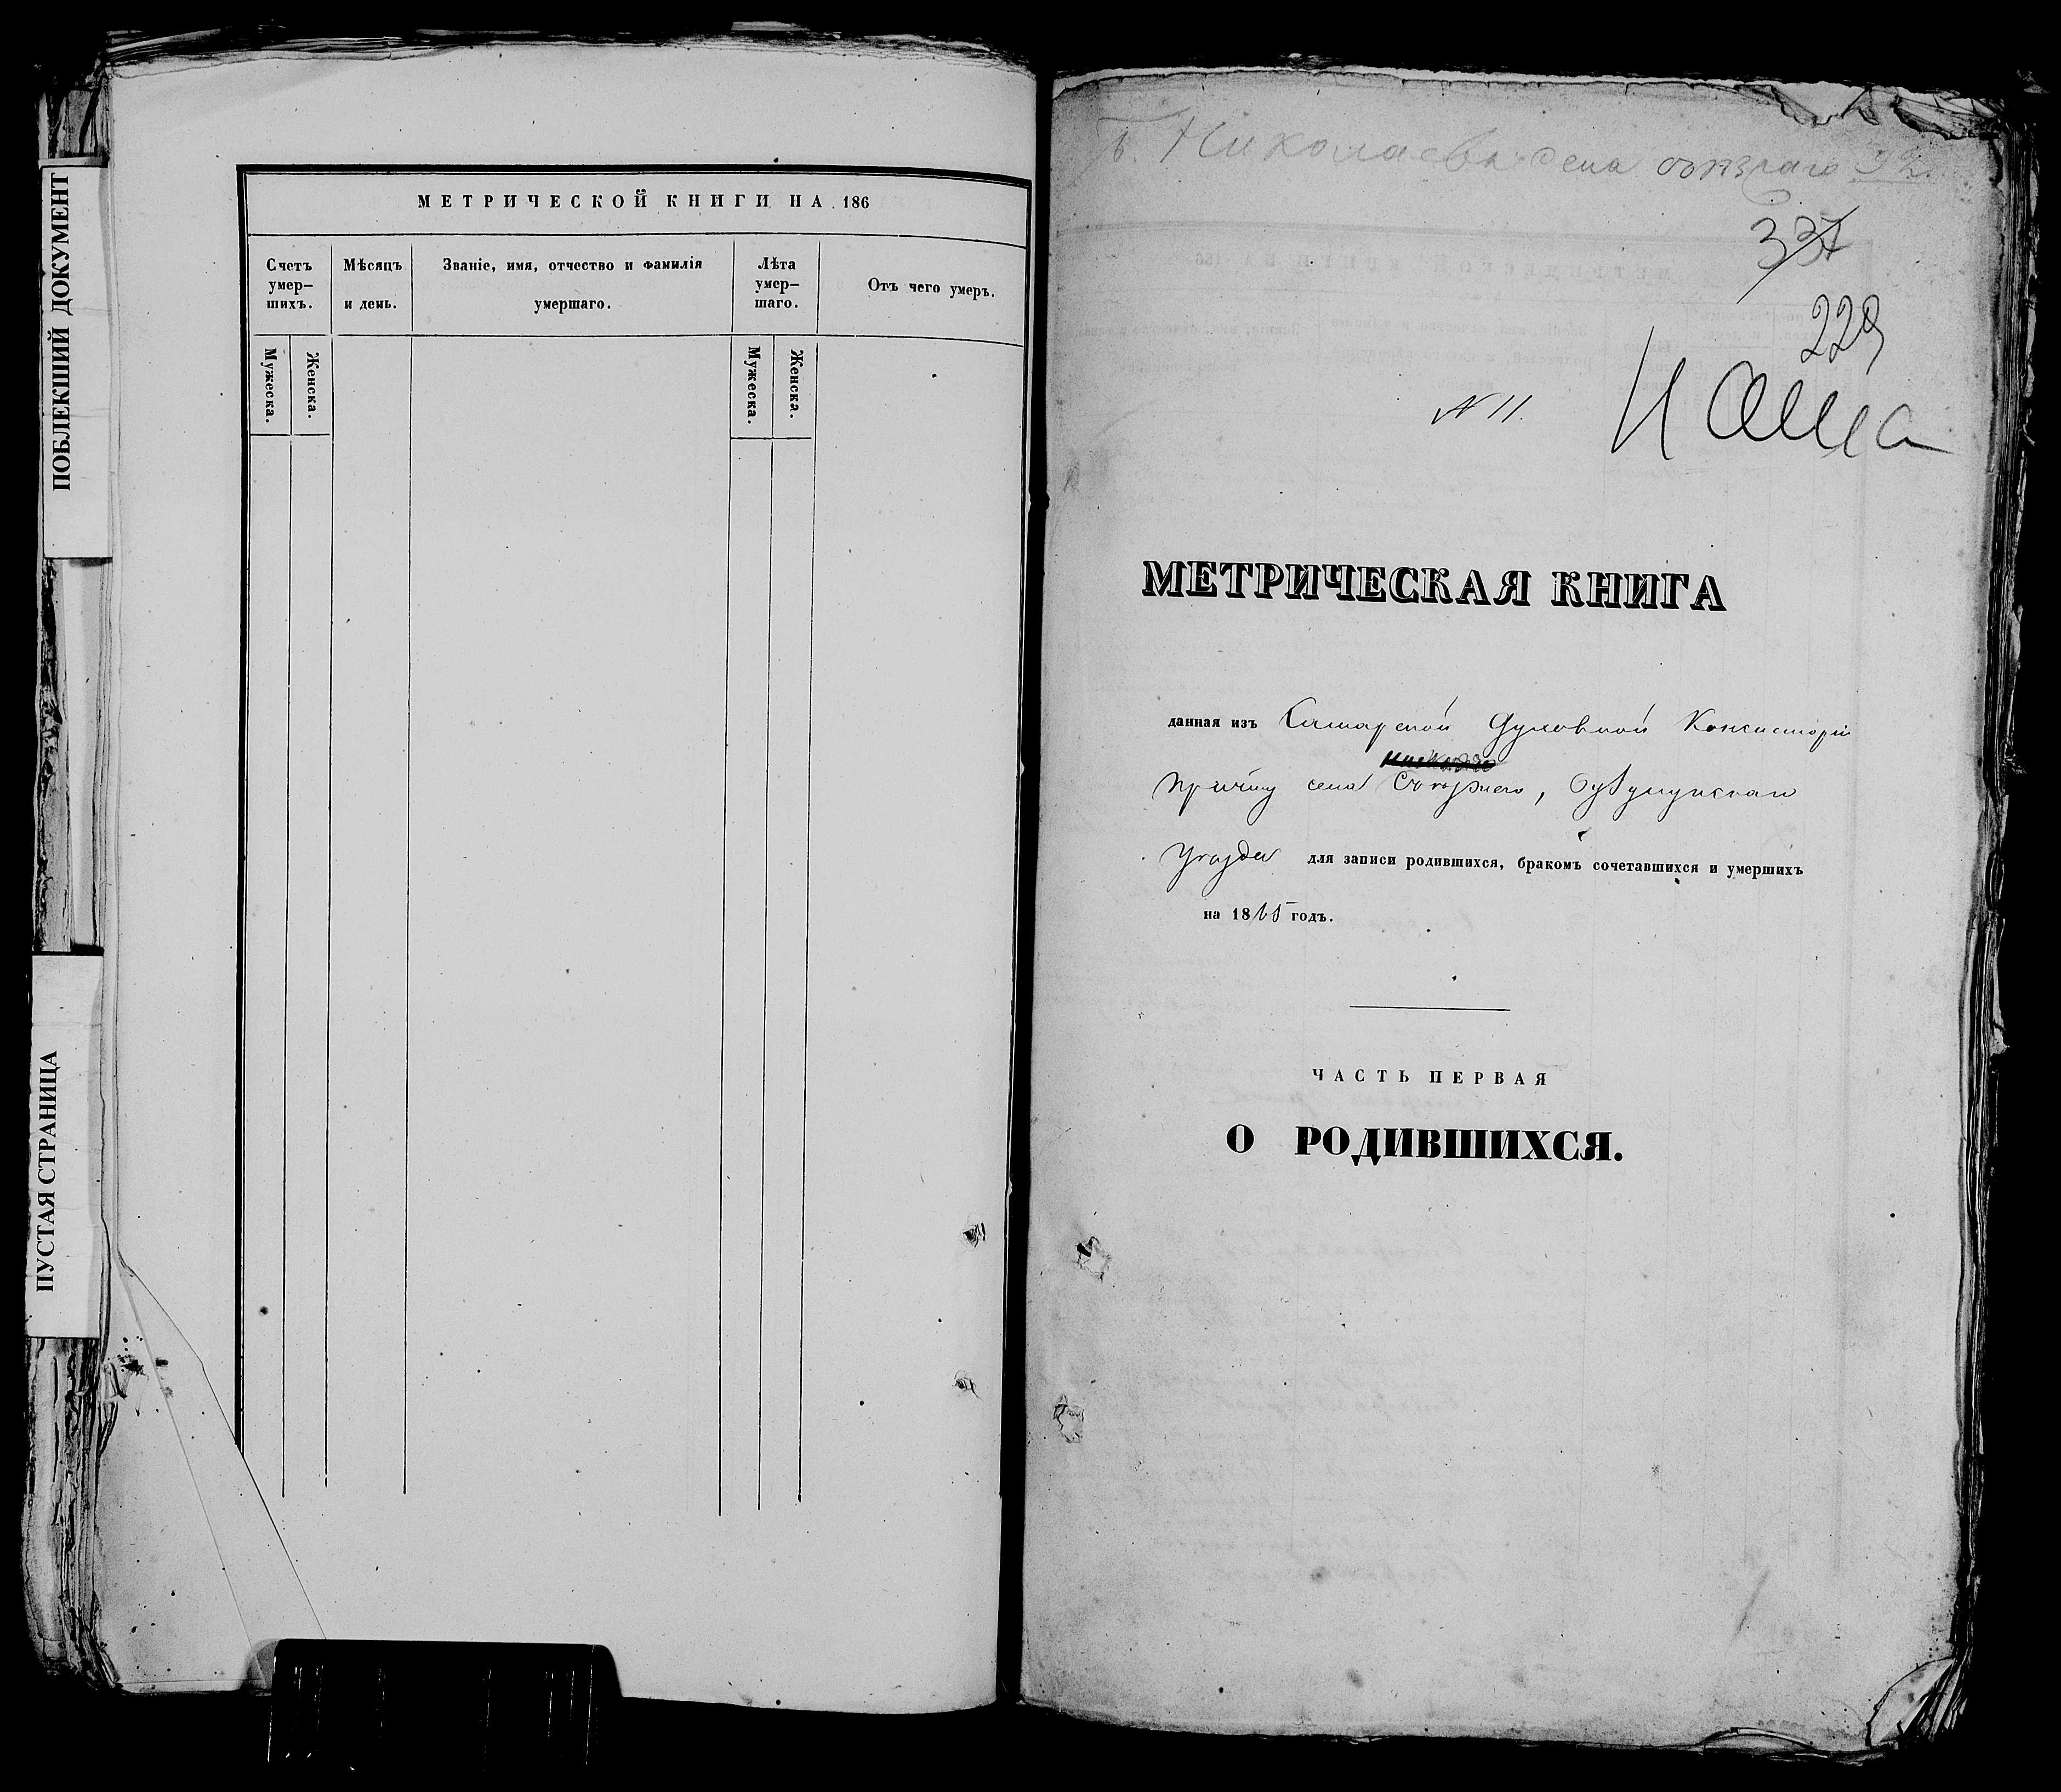 ПОБЛЕКШИЙ ДОКУМЕНТ
ПУСТАЯ СТРАНИЦА
МЕТРИЧЕСКОЙ КНИГИ НА 186
Счетъ умер–шихъ.
Мѣсяцъ и день.
Званіе, имя, отчество и фамилія умершаго.
Лѣта умер–шаго.
Отъ чего умеръ.
Мужеска.
Женска.
Мужеска.
Женска.
Николаевка села
337
229
N 11.
МЕТРИЧЕСКАЯ КНИГА
данная изъ Самарской Духовной Консисторіи
причту села
уѣзда для записи родившихся, бракомъ сочетавшихся и умершихъ
на 1865 годъ.
ЧАСТЬ ПЕРВАЯ
О РОДИВШИХСЯ.